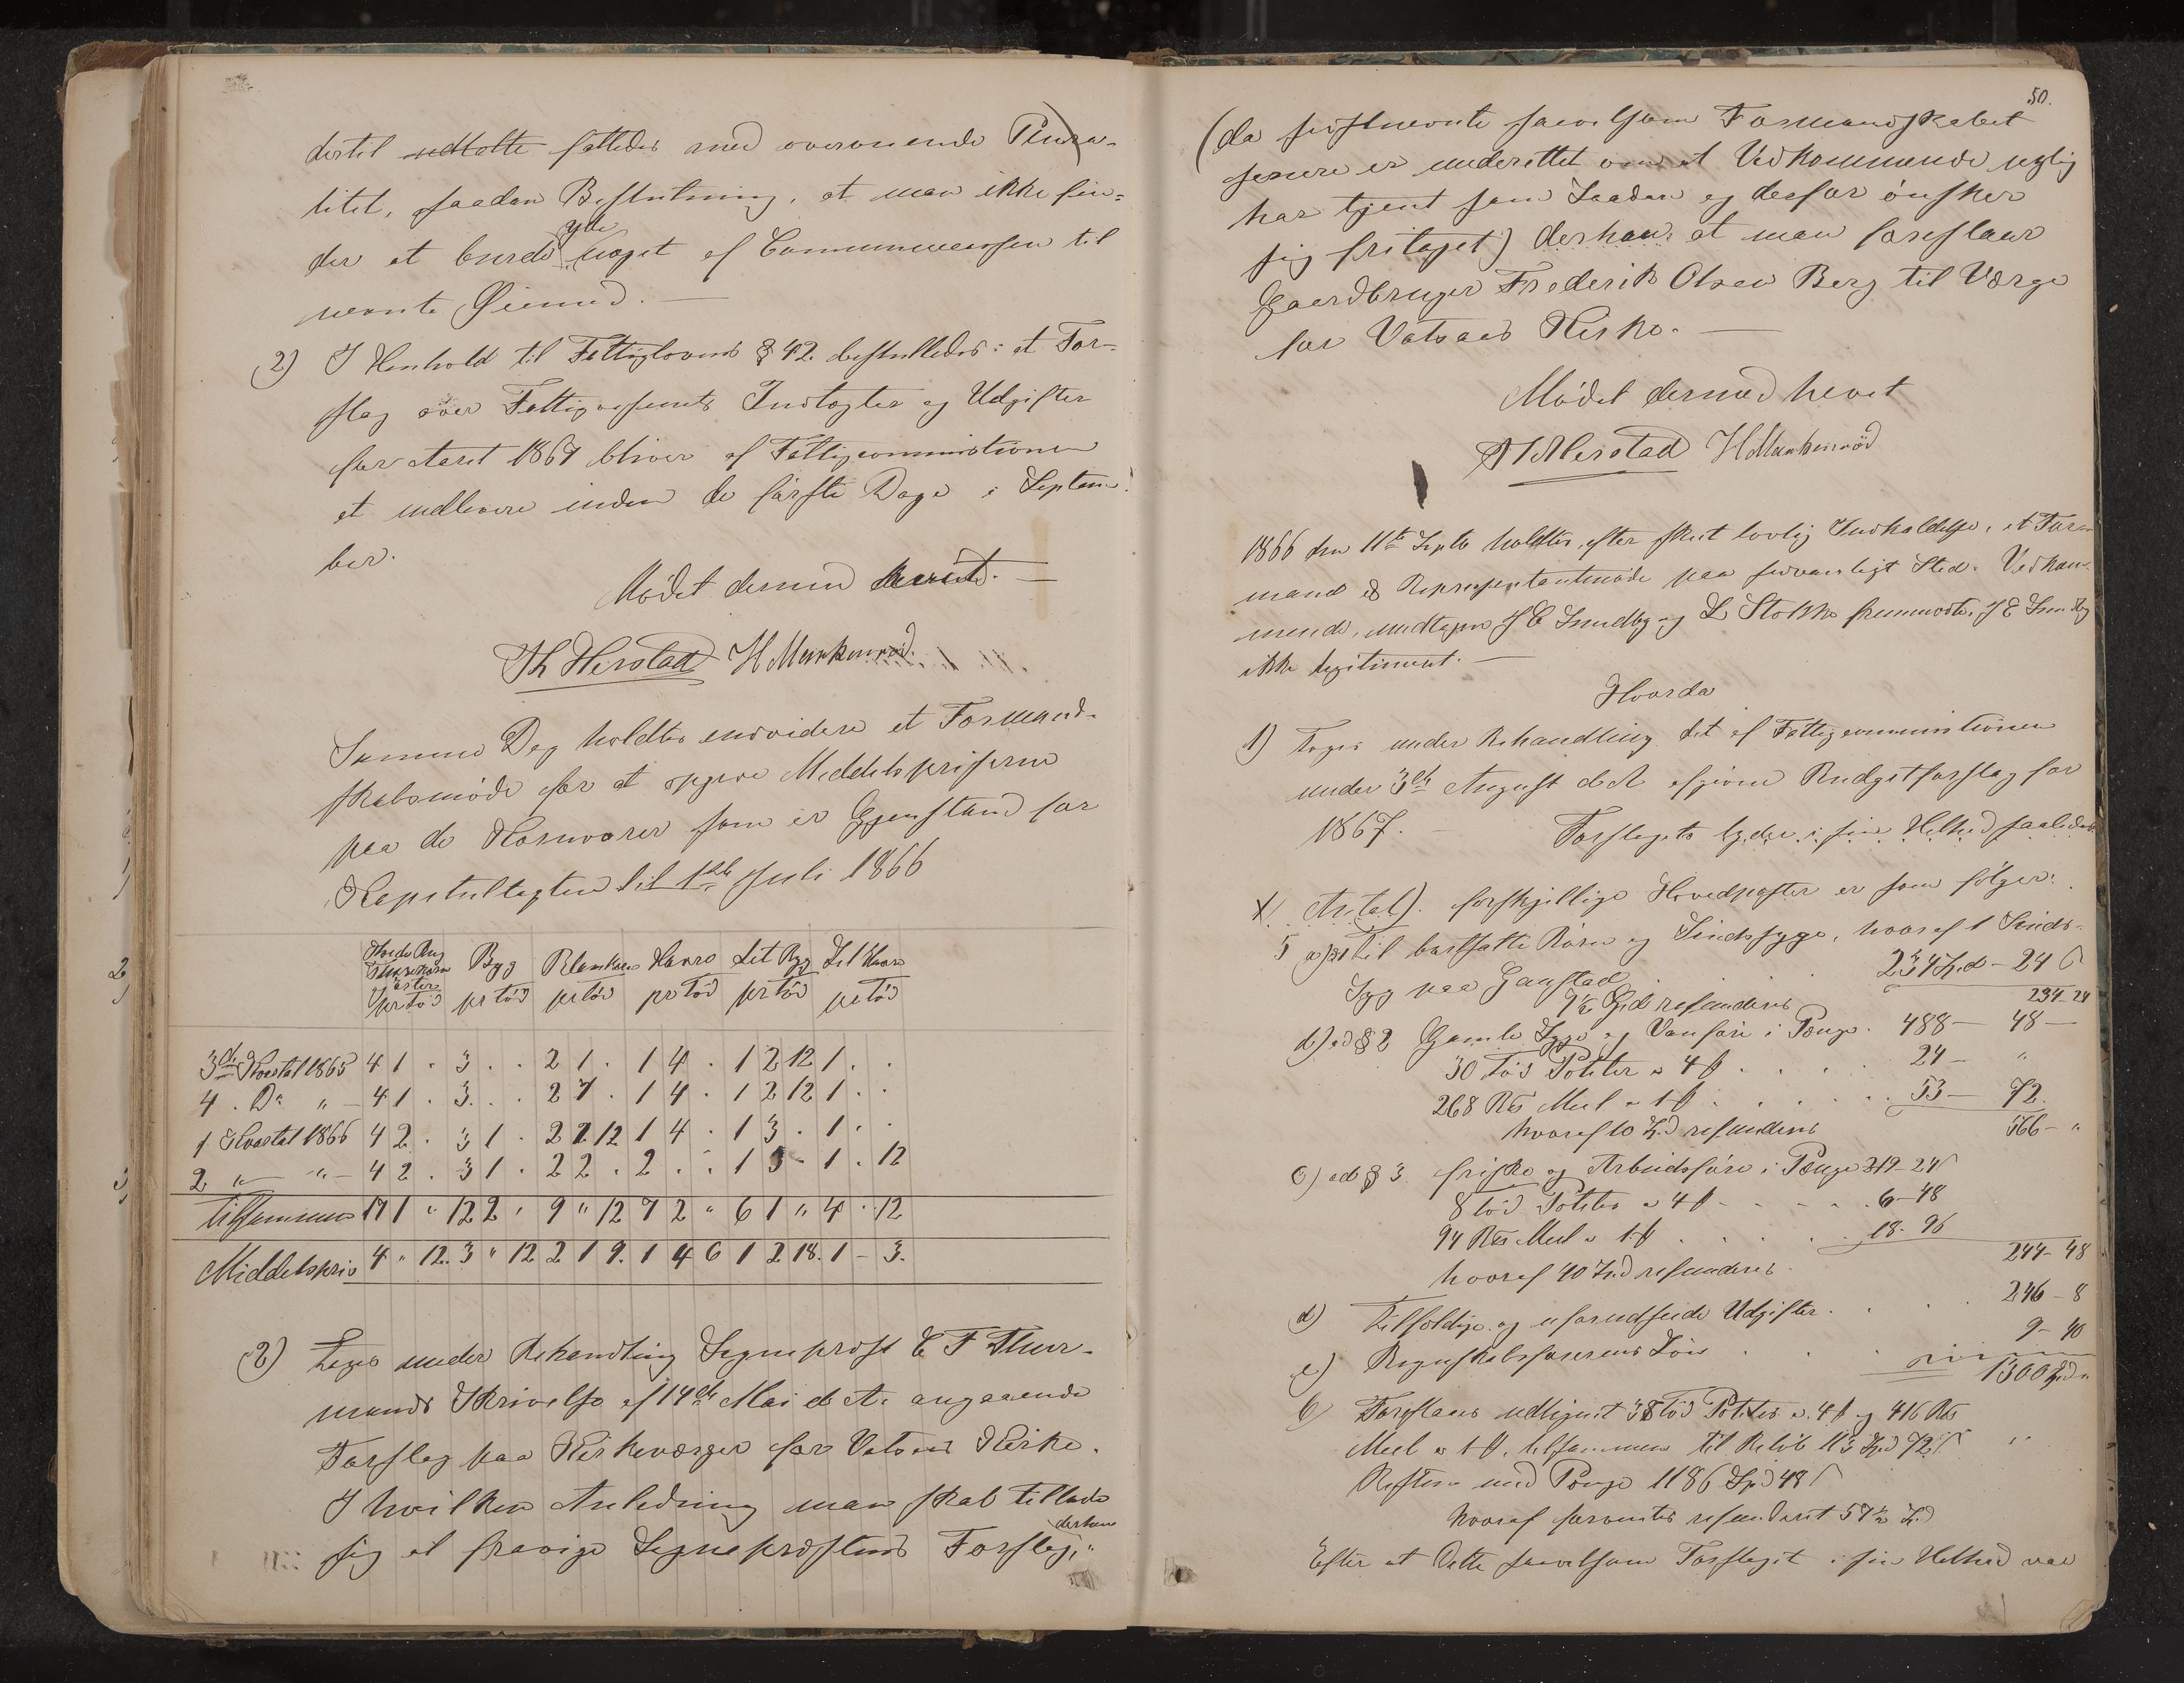 dertil udtalte fattedes med overveiende Plura-
litet, saadan Beslutning, at man ikke fin-
yde
der at burde noget af Communecassen til
nevnte Øiemed. —
2) I Henhold til Fattiglovens § 42. besluttedes: at For-
slag over Fattigvesenets Indtægter og Udgifter
for Aaret 1867 bliver af Fattigcommistionen
at indlevere inden de første Dage i Septem-
ber.
Mødet dermed hævet. —
Th Herstad H Munkenrød.
Samme Dag holdtes endvidere et Formand-
skabsmøde for at opgive Middelspriserne
paa de Kornvarer som er Gjenstand for
Kapitultagten til 1ste Juli 1866
Byg Blankorn Havre Let Byg Let Havre
pr Tød pr Tød pr Tød pr Tød pr Tød pr Tød
3de Kvartal 1865 4 1 . 3 . . 2 1 . 1 4 . 1 2 12 1 . .
4 . Do " — 4 1 . 3 . . 2 1 . 1 4 . 1 2 12 1 . .
1 Kvartal 1866 4 2 . 3 1 . 2 2 12 1 4 . 1 3 . 1 . .
2 " — " — 4 2 . 3 1 . 2 2 . 2 . . 1 3 - 1 . 12
tilsammen 17 1 " 12 2 " 9 " 12 7 2 " 6 1 " 4 . 12
Middelspris 4 " 12. 3 " 12 2 1 9. 1 4 6 1 2 18. 1 - 3.
2) Toges under Behandling Sogneprest C F Thur-
manns Skrivelse af 14de Mai d. A. angaaende
Forslag paa Kirkeværger for Vatsaas Kirke.
I hvilken Anledning man skal tillade
derhen
sig at fravige Sogneprestens Forslag,
50.
(da sidstnevnte saavelsom Formandskabet
senere er underrettet om at Vedkommende nylig
har tjent som Saadan og derfor ønsker
sig fritaget) derhen: at man foreslaar
Gaardbruger Frederik Olsen Berg til Værge
for Vatsaas Kirke. —
Mødet dermed hevet
Th Herstad H Munkenrød
1866 den 11te Septb holdtes, efter skeet lovlig Indkaldelse, et For-
mand og Representantmøde paa sedvanligt Sted. Vedkom-
mende, undtagen J E Sundby og L Stokke fremmødte. J E Sundby
ikke legitimeret. —
Hvorda
1) Toges under Behandling det af Fattigcommistionen
under 3de August d. A. afgivne Budgetforslag for
1867. — Forslagets lyder i sin Helhed saaledes
forskjellige Hovedposter er som følger:
til bortsatte Børn og Sindssyge, hvoraf 1 Sinds-
syg paa Gaustad 234 Spd - 24 ß
Spd refunderes 234 - 24
b) ad § 2 Gamle Syge og Vanføre i Penge. 488 — 48 —
30 Tød Poteter a 4 ₰ . . . . 24 — "
268 B℔ Meel a 1 ₰ . . . . . 53 — 72.
hvoraf 10 Spd refunderes 566 - "
c) ad § 3 friske og Arbeidsføre i Penge 219 - 24 ß
8 Tød Poteter a 4 ₰ - - - - . 6 - 48
94 B℔ Meel a 1 ₰ . . . . . 18 - 96
244 - 48
hvoraf 40 Spd refunderes.
d) Tilfeldige og uforudseede Udgifter . . . . 246 - 8
e) Regnskabsførerens Løn . . . 9 - 40
1300 Spd "
Foreslaaes udlignet 38 Tød Poteter a. 4 ₰ og 416 B℔
Meel a 1 ₰, tilsammen til Beløb 113 Spd 72 ß "
Resten med Penge 1186 Spd 48 ß
hvoraf forventes refunderet 57½ Spd
Efter at Dette saavelsom Forslaget i sin Helhed var